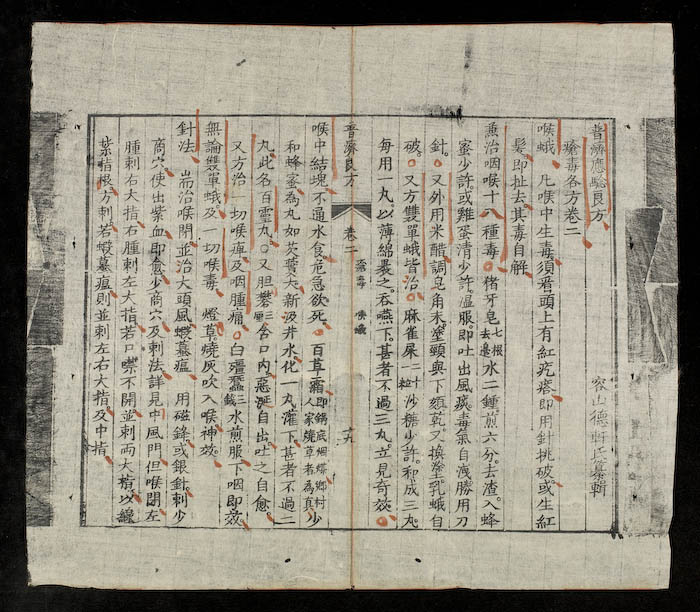 普濟應驗良方
瘡毒各方卷二
密山德軒氏纂輯
喉蛾　凡喉中生毒須看頭上有紅疙瘩即用針挑破或生紅
髮即扯去其毒自解
熏治咽喉十八種毒　猪牙皂七根去邊水二鍾煎六分去渣入蜂
蜜少許或雞蛋清少許溫服即吐出風痰毒氣自洩勝用刀
針　又外用米醋調皂角末塗頸與下頦乾又換塗乳蛾自
破　又方雙單蛾皆治　麻雀屎二十粒沙糖少許和成三丸
每用一丸以薄綿裹之吞嚥下甚者不過三丸立見奇效
普濟良方　卷二　瘡毒　喉蛾　十九
喉中結塊不通水食危急欲死　百草霜即鍋底烟煤鄉村人家燒草者為真少
和蜂蜜為丸如芡實大新汲井水化一丸灌下甚者不過二
丸此名百靈丸　又胆礬三厘含口內惡涎自出吐之自愈
又方治一切喉痺及咽腫痛　白殭蠶三錢水煎服下咽即效
無論雙單蛾及一切喉毒　燈草燒灰吹入喉神效
針法　耑治喉閉並治大頭風蝦蟇瘟　用磁鋒或銀針刺少
商穴使出紫血即愈少商穴及刺法詳見中風門但喉閉左
腫刺右大指右腫刺左大指若口噤不開並刺兩大指以線
紮指根方刺若蝦蟇瘟則並刺左右大指及中指